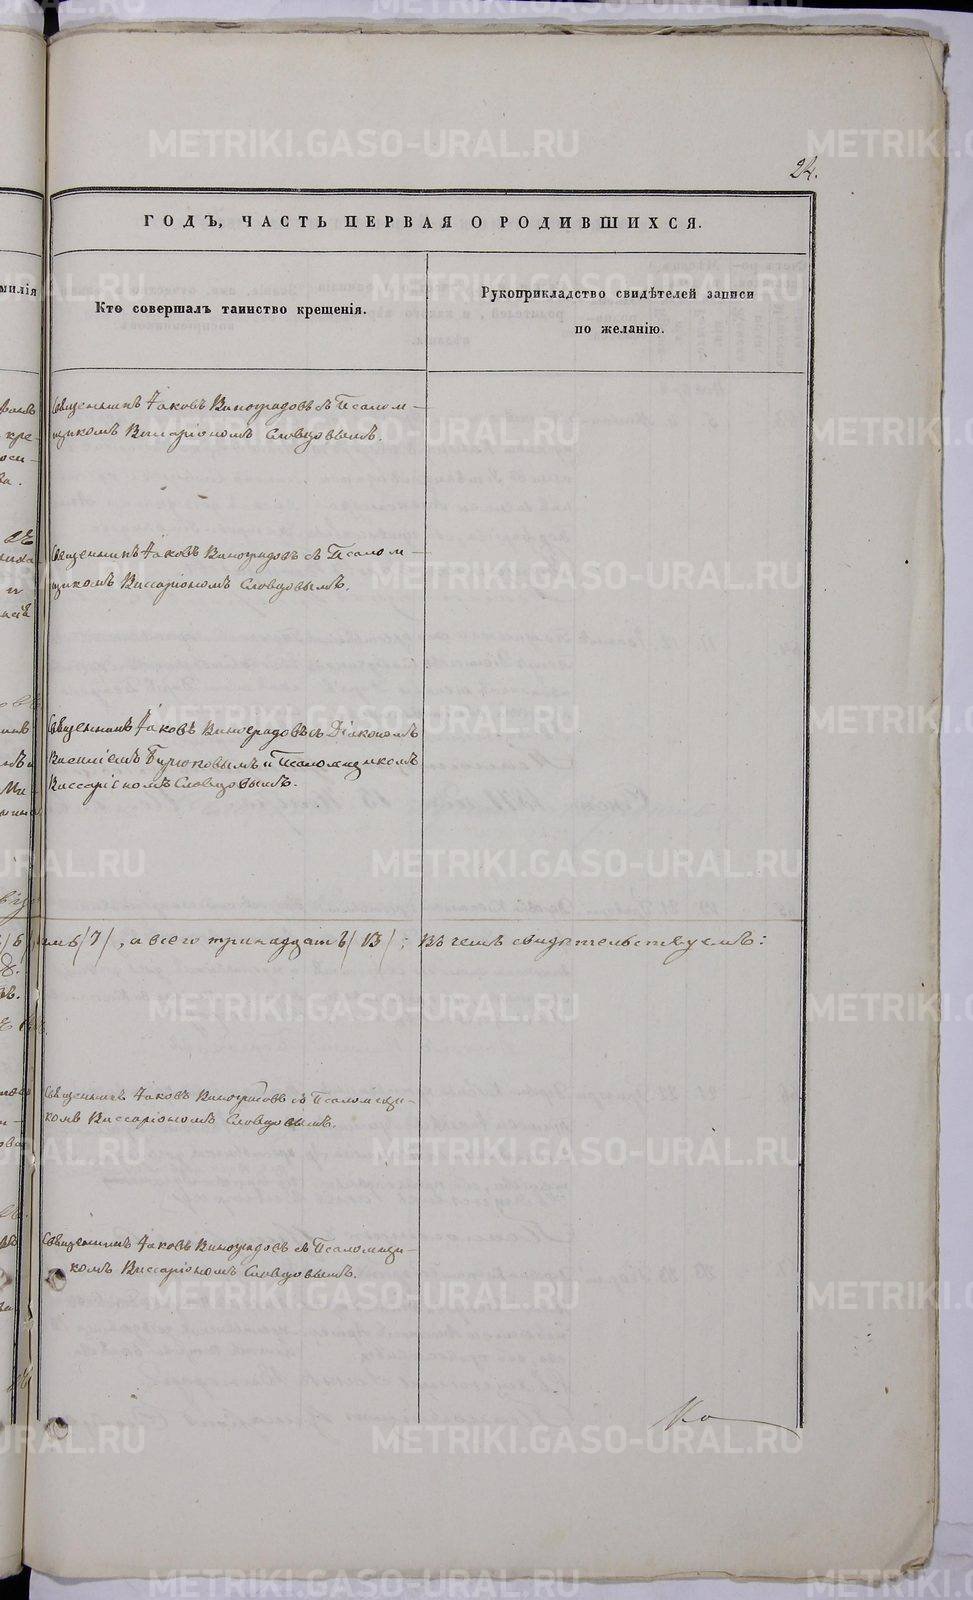 24.
ГОДЪ, ЧАСТЬ ПЕРВАЯ О РОДИВШИХСЯ.
милія
Кто совершалъ таинство крещенія.
Рукоприкладство свидѣтелей записи
по желанію.
Священникъ Іаковъ Виноградовъ съ Псалом-
щикомъ Виссаріономъ Словцовымъ.
Священникъ Іаковъ Виноградовъ съ Псалом-
щикомъ Виссаріономъ Словцовымъ.
Священникъ Іаковъ Виноградовъ съ Діакономъ
Бирюковымъ и Псаломщикомъ
Виссаріономъ Словцовымъ.
/7/, а всего тринадцать /13/; въ чемъ свидѣтельствуемъ:
Священникъ Іаковъ Виноградовъ съ Псаломщи-
комъ Виссаріономъ Словцовымъ.
Священникъ Іаковъ Виноградовъ съ Псаломщи-
комъ Виссаріономъ Словцовымъ.
METRIKI.GASO-URAL.RU